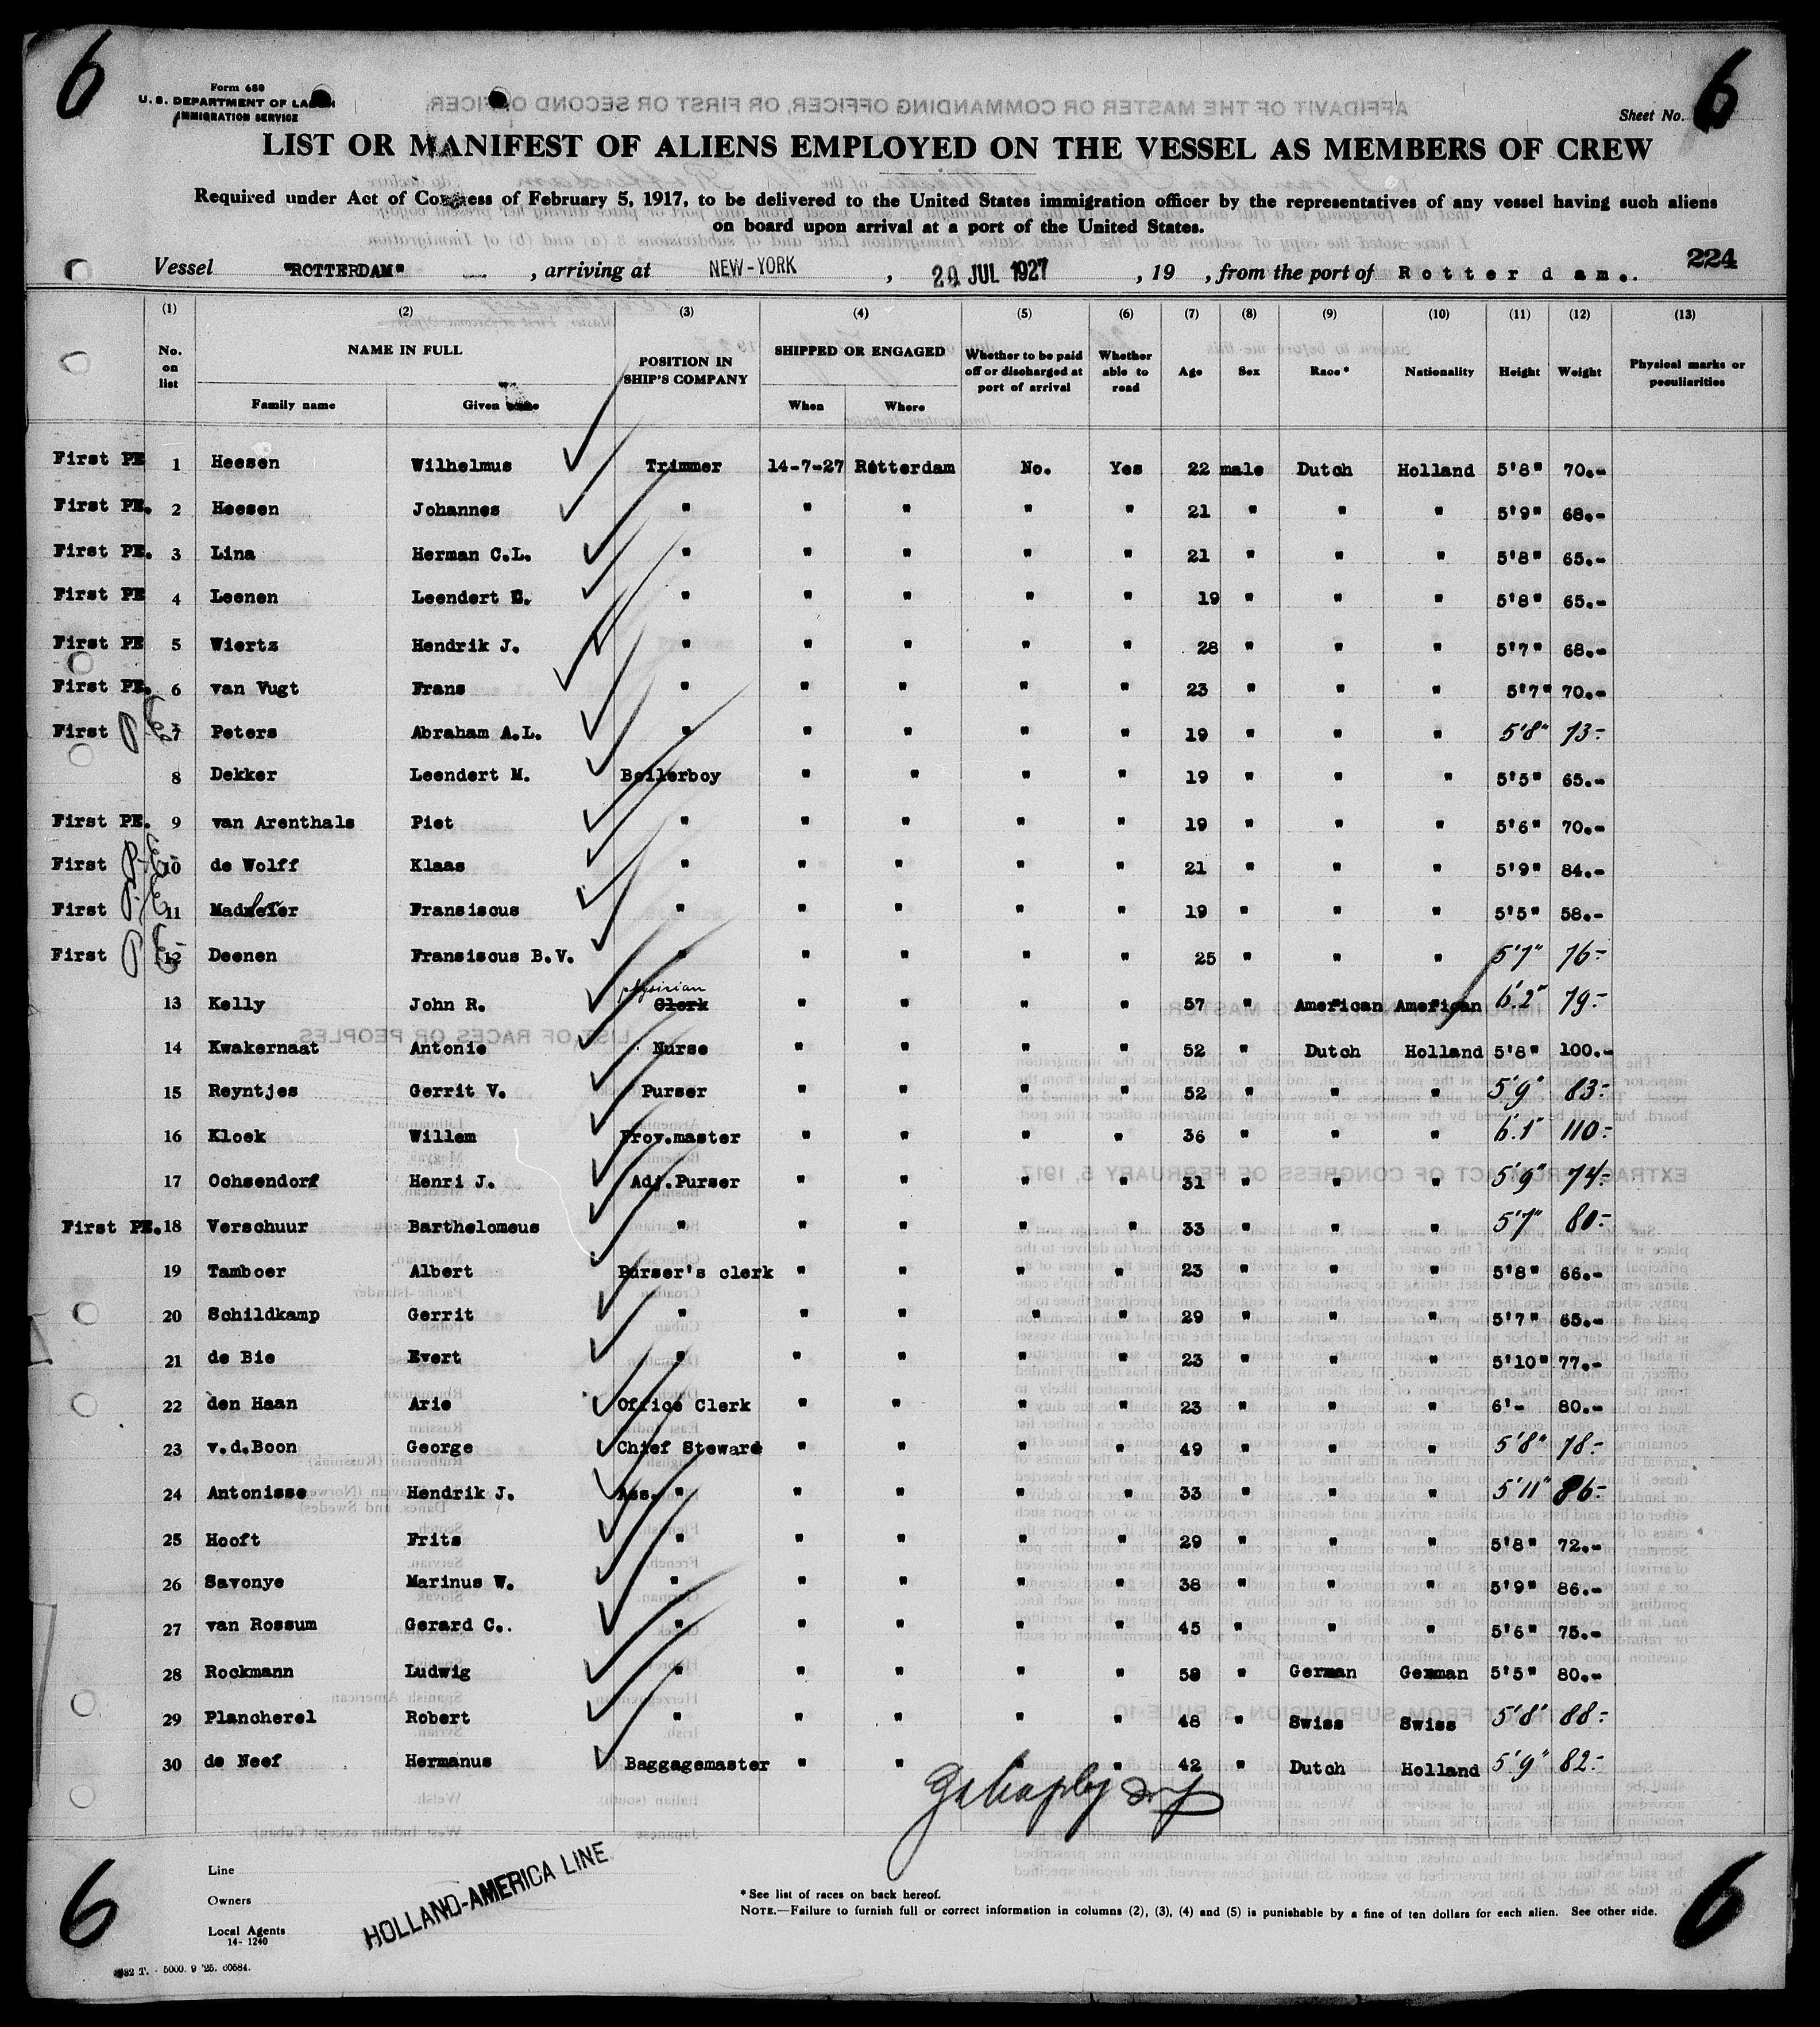 6
6
Form 680
U. S. DEPARTMENT OF LABOR
IMMIGRATION SERVICE
Sheet No. 6
LIST OR MANIFEST OF ALIENS EMPLOYED ON THE VESSEL AS MEMBERS OF CREW
Required under Act of Congress of February 5, 1917, to be delivered to the United States immigration officer by the representatives of any vessel having such aliens
on board upon arrival at a port of the United States.
224
Vessel "ROTTERDAM" , arriving at NEW-YORK , 20 JUL 1927 , 19 , from the port of Rotterdam.
(1) (2) (3) (4) (5) (6) (7) (8) (9) (10) (11) (12) (13)
No. on list NAME IN FULL Family name Given name POSITION IN SHIP'S COMPANY SHIPPED OR ENGAGED When Where Whether to be paid off or discharged at port of arrival Whether able to read Age Sex Race* Nationality Height Weight Physical marks or peculiarities
First PE 1 Heesen Wilhelmus Trimmer 14-7-27 Rotterdam No. Yes 22 male Dutch Holland 5'8" 70.-
First PE. 2 Heesen Johannes " " " " " 21 " " " 5'9" 68.-
First PE. 3 Lina Herman C.L. " " " " " 21 " " " 5'8" 65.-
First PE 4 Leenen Leendert E. " " " " " 19 " " " 5'8" 65.-
First PE 5 Wiertz Hendrik J. " " " " " 28 " " " 5'7" 68.-
First PE. 6 van Vugt Frans " " " " " 23 " " " 5'7" 70.-
First P.E. 7 Peters Abraham A.L. " " " " " 19 " " " 5'8" 73.-
8 Dekker Leendert M. Boilerboy " " " " 19 " " " 5'5" 65.-
First PE. 9 van Arenthals Piet " " " " " 19 " " " 5'6" 70.-
First P.E. 10 de Wolff Klaas " " " " " 21 " " " 5'9" 84.-
First P.E. 11 Fransiscus " " " " " 19 " " " 5'5" 58.-
First P.E. 12 Deenen Fransiscus B.V. " " " " " 25 " " " 5'7" 76-
13 Kelly John R. physician Clerk " " " " 57 " American American 6'.2" 79.-
14 Kwakernaat Antonie Nurse " " " " 52 " Dutch Holland 5'8" 100.-
15 Reyntjes Gerrit V. Purser " " " " 52 " " " 5'9" 83.-
16 Kloek Willem Prov.master " " " " 36 " " " 6'.1" 110.-
17 Ochsendorf Henri J. Adj.Purser " " " " 31 " " " 5'9" 74.-
First PE. 18 Verschuur Barthelomeus " " " " " 33 " " " 5'7" 80.-
19 Tamboer Albert Purser's clerk " " " " 23 " " " 5'8" 66.-
20 Schildkamp Gerrit " " " " " 29 " " " 5'7" 65.-
21 de Bie Evert " " " " " 23 " " " 5'10" 77.-
22 den Haan Arie Office Clerk " " " " 23 " " " 6'- 80.-
23 v.d.Boon George Chief Steward " " " " 49 " " " 5'8" 78.-
24 Antonisse Hendrik J. Ass. " " " " " 33 " " " 5'11" 86-
25 Hooft Frits " " " " " 29 " " " 5'8" 72.-
26 Savonye Marinus W. " " " " " 38 " " " 5'9" 86.-
27 van Rossum Gerard C.. " " " " " 45 " " " 5'6" 75.-
28 Rockmann Ludwig " " " " " 58 " German German 5'5" 80.-
29 Plancherel Robert " " " " " 48 " Swiss Swiss 5'8" 88.-
30 de Neef Hermanus Baggagemaster " " " " 42 " Dutch Holland 5'9" 82.-
Line
Owners
Local Agents
14-1240
HOLLAND-AMERICA LINE
*See list of races on back hereof.
NOTE.—Failure to furnish full or correct information in columns (2), (3), (4) and (5) is punishable by a fine of ten dollars for each alien. See other side.
6
6